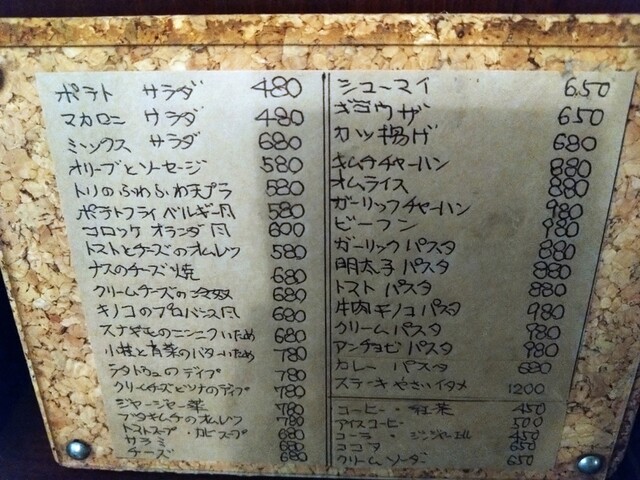 ポテト サラダ 480
マカロニ サラダ 480
ミックス サラダ 680
オリーブとソーセージ 580
トリのふわふわ天プラ 580
ポテトフライ ベルギー風 580
コロッケ オランダ風 600
トマトとチーズのオムレツ 580
ナスのチーズ焼 680
クリームチーズの冷奴 680
キノコのプロバンス風 680
スナギモのニンニクいため 680
小柱と青菜のバターいため 780
ラタトゥユのディプ 780
クリームチーズとツナのディプ 780
ジャージャー菜 780
ブタキムチのオムレツ 780
トマトスープ・カニスープ 680
サラミ 680
チーズ 680
シューマイ 650
ギョウザ 650
カツ揚げ 680
キムチチャーハン 880
オムライス 880
ガーリックチャーハン 980
ビーフン 980
ガーリック パスタ 880
明太子 パスタ 880
トマト パスタ 880
牛肉 キノコ パスタ 980
クリーム パスタ 980
アンチョビ パスタ 980
カレー パスタ 680
ステーキ やさいイタメ 1200
コーヒー・紅茶 450
アイスコーヒー 500
コーラ・ジンジャーエール 450
ココア 650
クリーム ソーダー 650